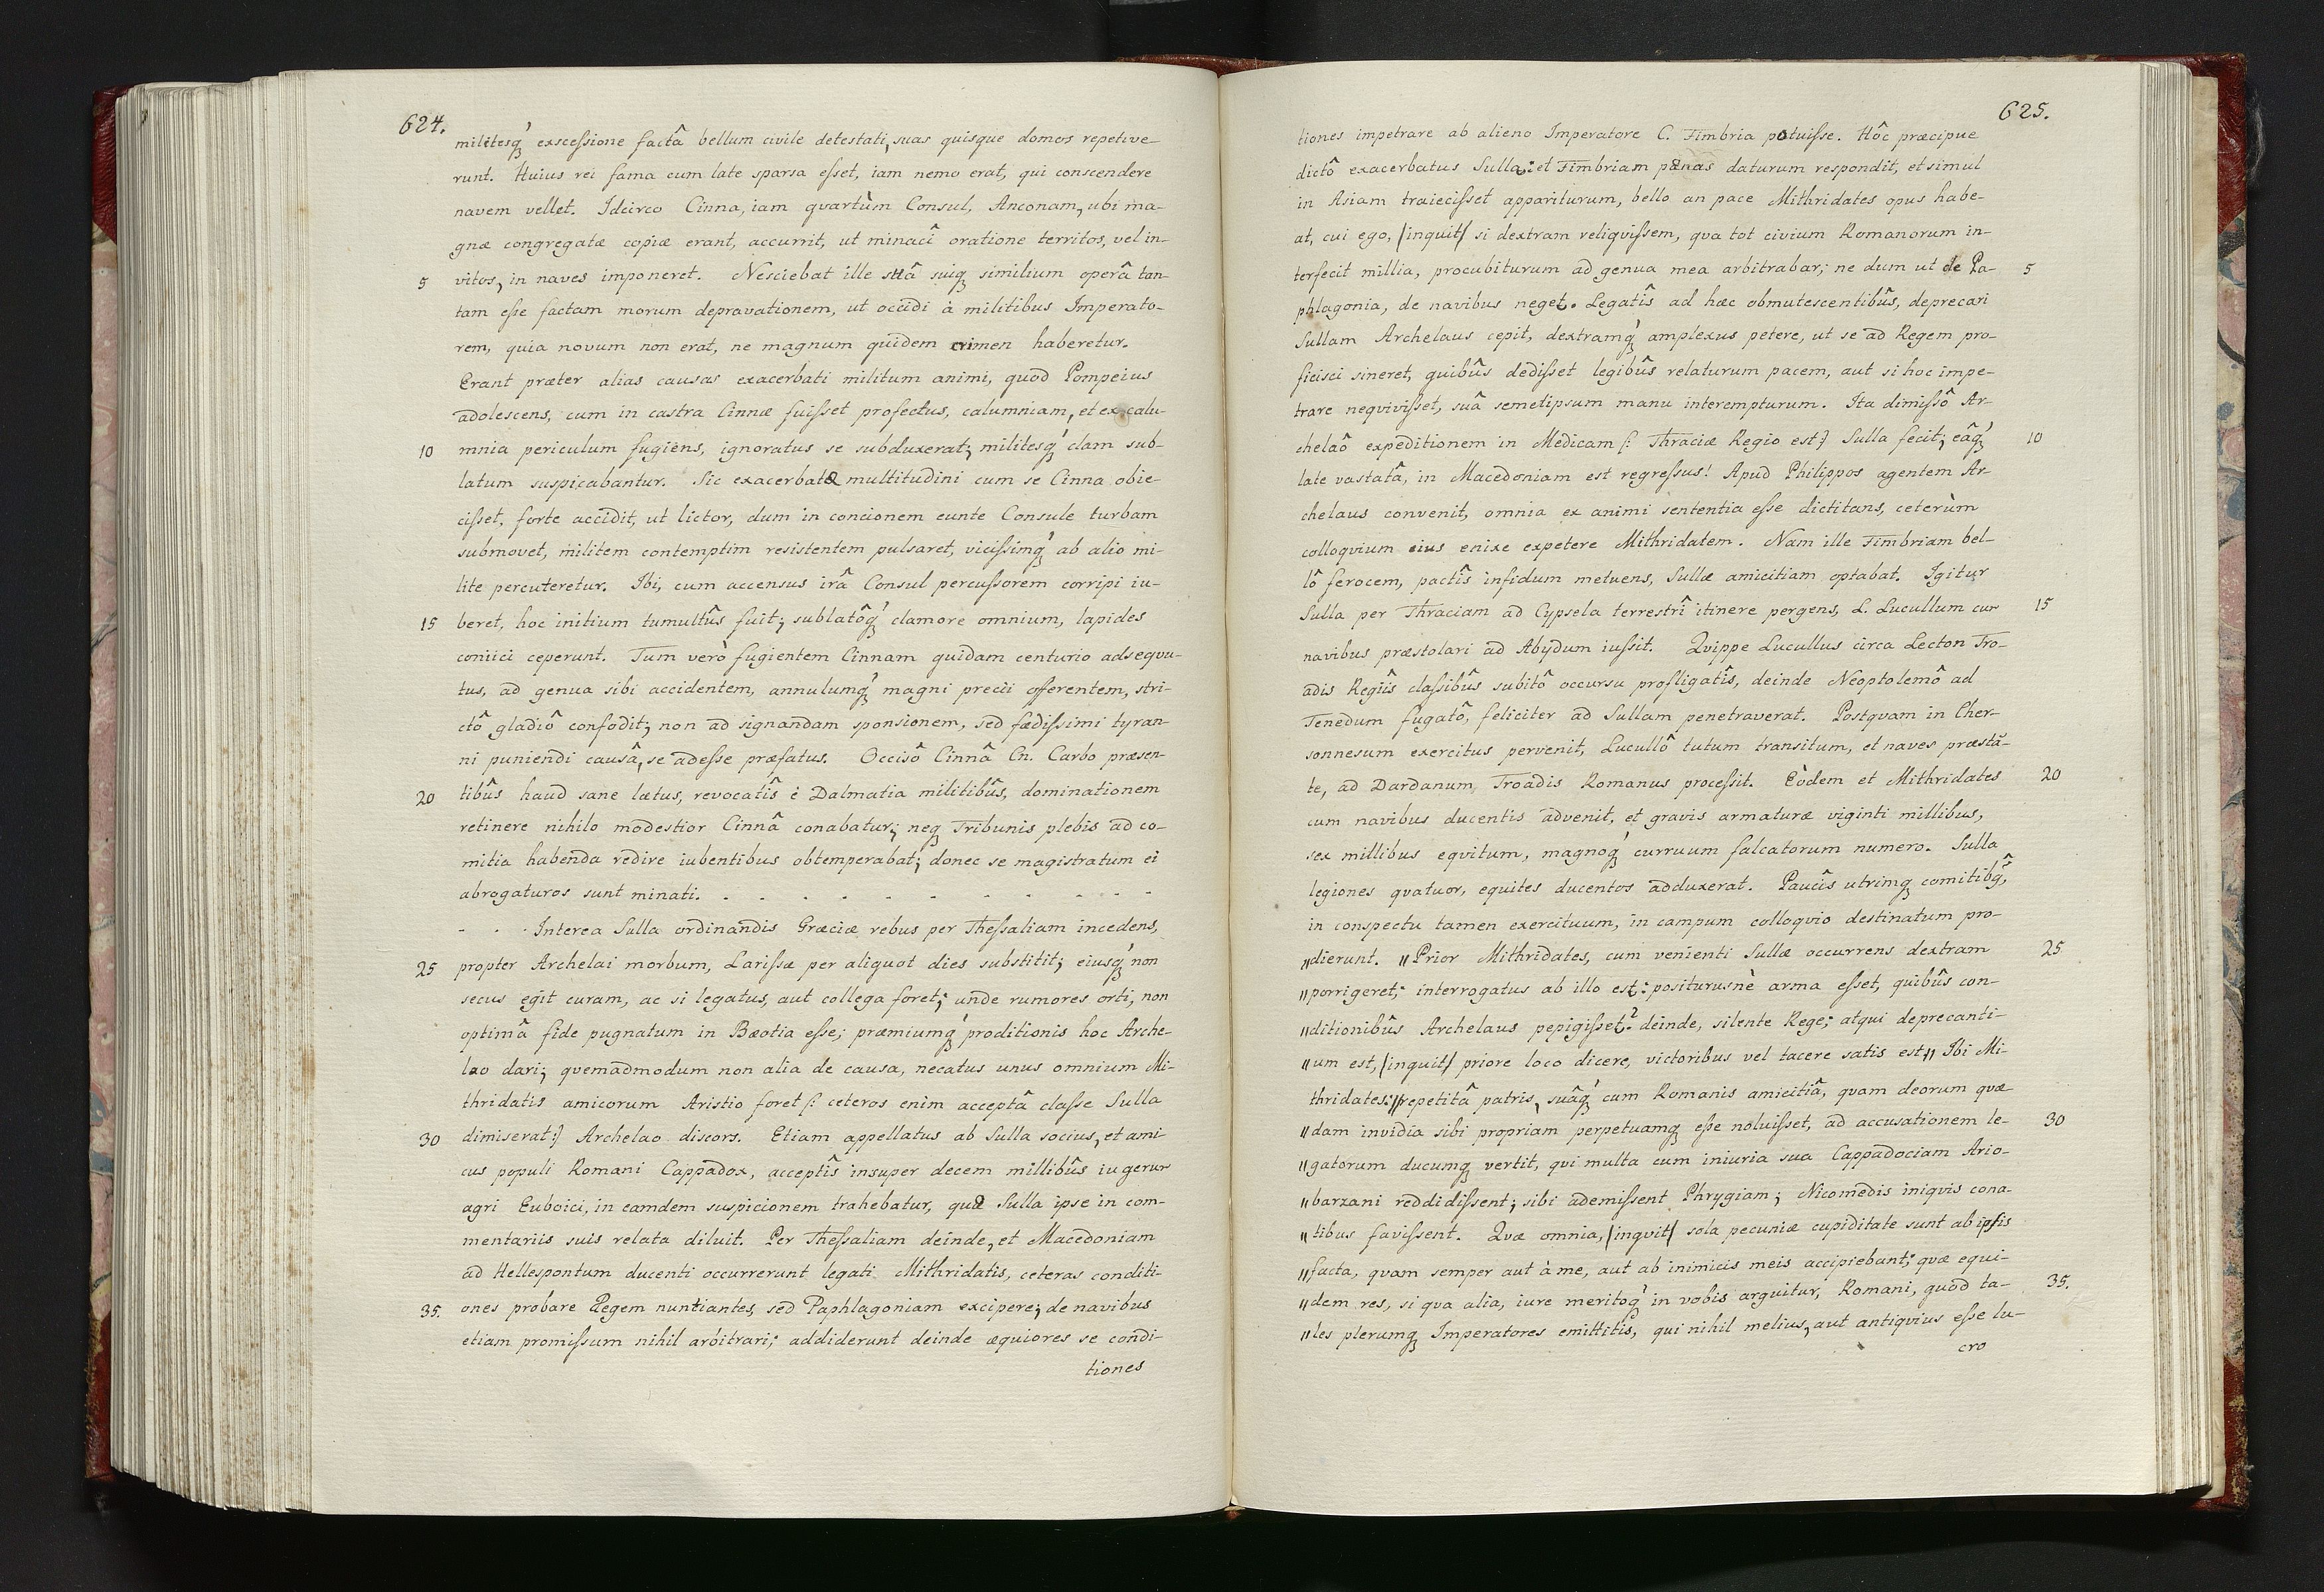 624.
militesq́ue exscessione factâ bellum civile detestati, suas quisque domos repetive-
runt. Huius rei fama cum late sparsa esset, iam nemo erat, qui conscendere
navem vellet. Idcirco Cinna, iam qvartùm Consul, Anconam, ubi ma-
gnæ congregatæ copiæ erant, accurrit, ut minacî oratione territos, vel in-
5 vitos, in naves imponeret. Nesciebat ille suâ suiqꝫ similium operâ tan-
tam esse factam morum depravationem, ut occidi à militibus Imperato-
rem, quia novum non erat, ne magnum quidem crimen haberetur.
Erant præter alias causas exacerbati militum animi, quod Pompeius
adolescens, cum in castra Cinnæ fuisset profectus, calumniam, et ex calu-
10 mnia periculum fugiens, ignoratus se subduxerat; militesqꝫ́ clam sub-
latum suspicabantur. Sic exacerbatæ multitudini cum se Cinna obie-
cisset, forte accidit, ut lictor, dum in concionem eunte Consule turbam
submovet, militem contemptim resistentem pulsaret, vicissimqꝫ́ ab alio mi-
lite percuteretur. Ibi, cum accensus irâ Consul percussorem corripi iu-
15 beret, hoc initium tumultûs fuit; sublatôqꝫ́ clamore omnium, lapides
coniici ceperunt. Tum verò fugientem Cinnam quidam centurio adseqvu-
tus, ad genua sibi accidentem, annulumqꝫ́ magni precii offerentem, stri-
ctô gladiô confodit; non ad signandam sponsionem, sed fœdissimi tyran-
ni puniendi causâ, se adesse præfatus. Occisô Cinnâ Cn. Carbo præsen-
20 tibûs haud sane lætus, revocatîs è Dalmatia militibûs, dominationem
retinere nihilo modestior Cinnâ conabatur; neqꝫ Tribunis plebis ad co-
mitia habenda redire iubentibus obtemperabat; donec se magistratum ei
abrogaturos sunt minati. . . . . . . . . . . .
- . . Interea Sulla ordinandis Græciæ rebus per Thessaliam incedens,
25 propter Archelai morbum, Larissæ per aliquot dies substitit; eiusqꝫ́ non
secus egit curam, ac si legatus, aut collega foret; unde rumores orti, non
optimâ fide pugnatum in Bœotia esse; præmiumqꝫ́ proditionis hoc Arche-
lao dari; qvemadmodum non alia de causa, necatus unus omnium Mi-
thridatis amicorum Aristio foret /: ceteros enim acceptâ classe Sulla
30 dimiserat :/ Archelao discors. Etiam appellatus ab Sulla socius, et ami-
cus populi Romani Cappadox, acceptîs insuper decem millibûs iugerum
agri Euboici, in eamdem suspicionem trahebatur, quæ Sulla ipse in com-
mentariis suis relata diluit. Per Thessaliam deinde, et Macedoniam
ad Hellespontum ducenti occurrerunt legati Mithridatis, ceteras conditi-
35. ones probare Regem nuntiantes, sed Paphlagoniam excipere; de navibus
etiam promissum nihil arbitrari; addiderunt deinde æquiores se condi-
tiones
625.
tiones impetrare ab alieno Imperatore C. Fimbria potuisse. Hôc præcipue
dictô exacerbatus Sulla: et Fimbriam pœnas daturum respondit, et simul
in Asiam traiecisset appariturum, bello an pace Mithridates opus habe-
at, cui ego, /inquit/ si dextram reliqvissem, qva tot civium Romanorum in-
terfecit millia, procubiturum ad genua mea arbitrabar; ne dum ut de Pa- 5
phlagonia, de navibus neget. Legatîs ad hæc obmutescentibûs, deprecari
Sullam Archelaus cepit, dextramqꝫ́ amplexus petere, ut se ad Regem pro-
ficisci sineret, quibûs dedisset legibûs relaturum pacem, aut si hoc impe-
trare neqvivisset, suâ semetipsum manu interempturum. Ita dimissô Ar-
chelaô expeditionem in Medicam /: Thraciæ Regio est :/ Sulla fecit; eâqꝫ́ 10
late vastatâ, in Macedoniam est regressus! Apud Philippos agentem Ar-
chelaus convenit, omnia ex animi sententia esse dictitans, ceterùm
colloqvium eius enixe expetere Mithridatem. Nam ille Fimbriam bel-
lô ferocem, pactîs infidum metuens, Sullæ amicitiam optabat. Igitur
Sulla per Thraciam ad Cypsela terrestrî itinere pergens, L. Lucullum cum 15
navibus præstolari ad Abydum iussit. Qvippe Lucullus circa Lecton Tro-
adis Regiîs classibûs subitô occursu profligatîs, deinde Neoptolemô ad
Tenedum fugatô, feliciter ad Sullam penetraverat. Postqvam in Cher-
sonnesum exercitus pervenit, Lucullô tutum transitum, et naves præstā-
te, ad Dardanum Troadis Romanus processit. Eòdem et Mithridates 20
cum navibus ducentis advenit, et gravis armaturæ viginti millibus,
sex millibus eqvitum, magnoqꝫ́ curruum falcatorum numero. Sulla
legiones qvatuor, equites ducentos adduxerat. Paucîs utrimqꝫ comitibꝫ̂,
in conspectu tamen exercituum, in campum colloqvio destinatum pro-
„dierunt. „Prior Mithridates, cum venienti Sullæ occurrens dextram 25
„porrigeret; interrogatus ab illo est: positurusnè arma esset, quibûs con-
„ditionibûs Archelaus pepigisset? deinde, silente Rege; atqui deprecanti-
„um est, /inquit/ priore loco dicere, victoribus vel tacere satis est„ Ibi Mi-
thridates: „repetitâ patris, suâqꝫ́ cum Romanis amicitiâ, quam deorum qvæ
„dam invidia sibi propriam perpetuamqꝫ esse noluisset, ad accusationem le- 30
„gatorum ducumqꝫ vertit, qvi multa cum iniuria sua Cappadociam Ario-
„barzani reddidissent; sibi ademissent Phrygiam; Nicomedis iniqvis cona-
„tibus favissent. Qvæ omnia, /inqvit/ sola pecuniæ cupiditate sunt ab ipsis
„facta, qvam semper aut à me, aut ab inimicis meis accipiebant; qvæ equi-
„dem res, si qva alia, iure meritoqꝫ́ in vobis arguitur, Romani, quod ta- 35.
„les plerumqꝫ Imperatores emittitis, qui nihil melius, aut antiqvius esse lu-
cro